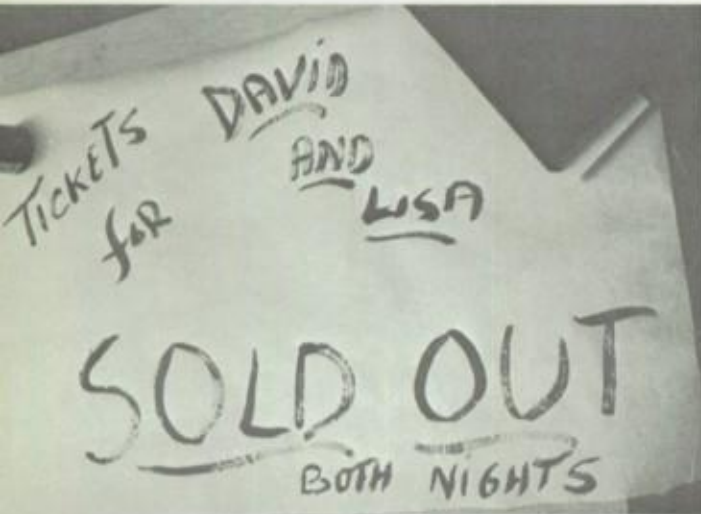 TICKETS
for
DAViD
AND
LISA
SOLD OUT
BOTH NIGHTS